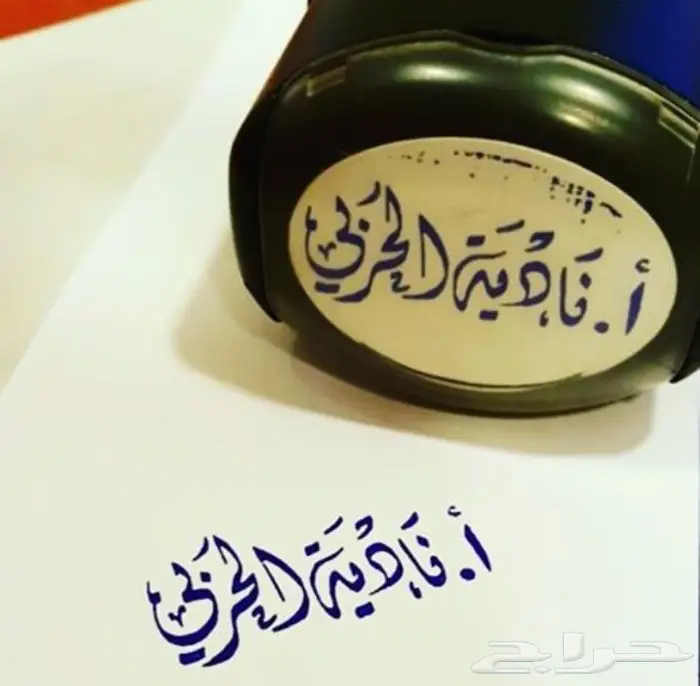 أ. نادية الحربي
أ. نادية الحربي
حراج